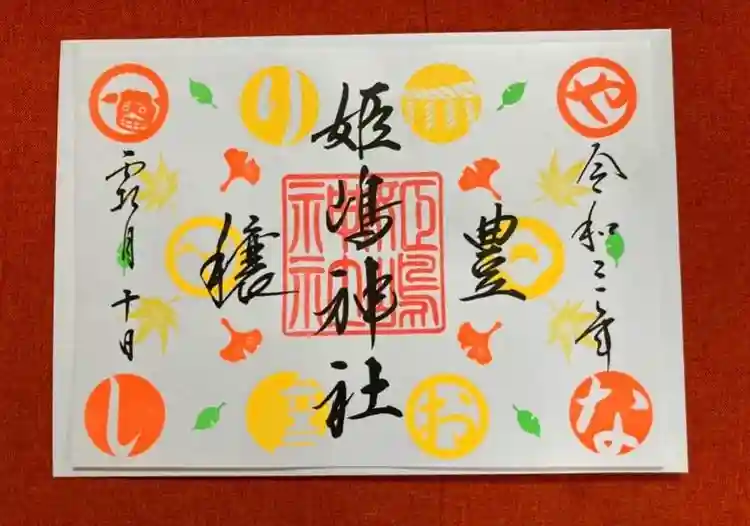 令和三年
豊
姫嶋神社
穣
霜月十日
姫嶋神社
や
り
な
お
し